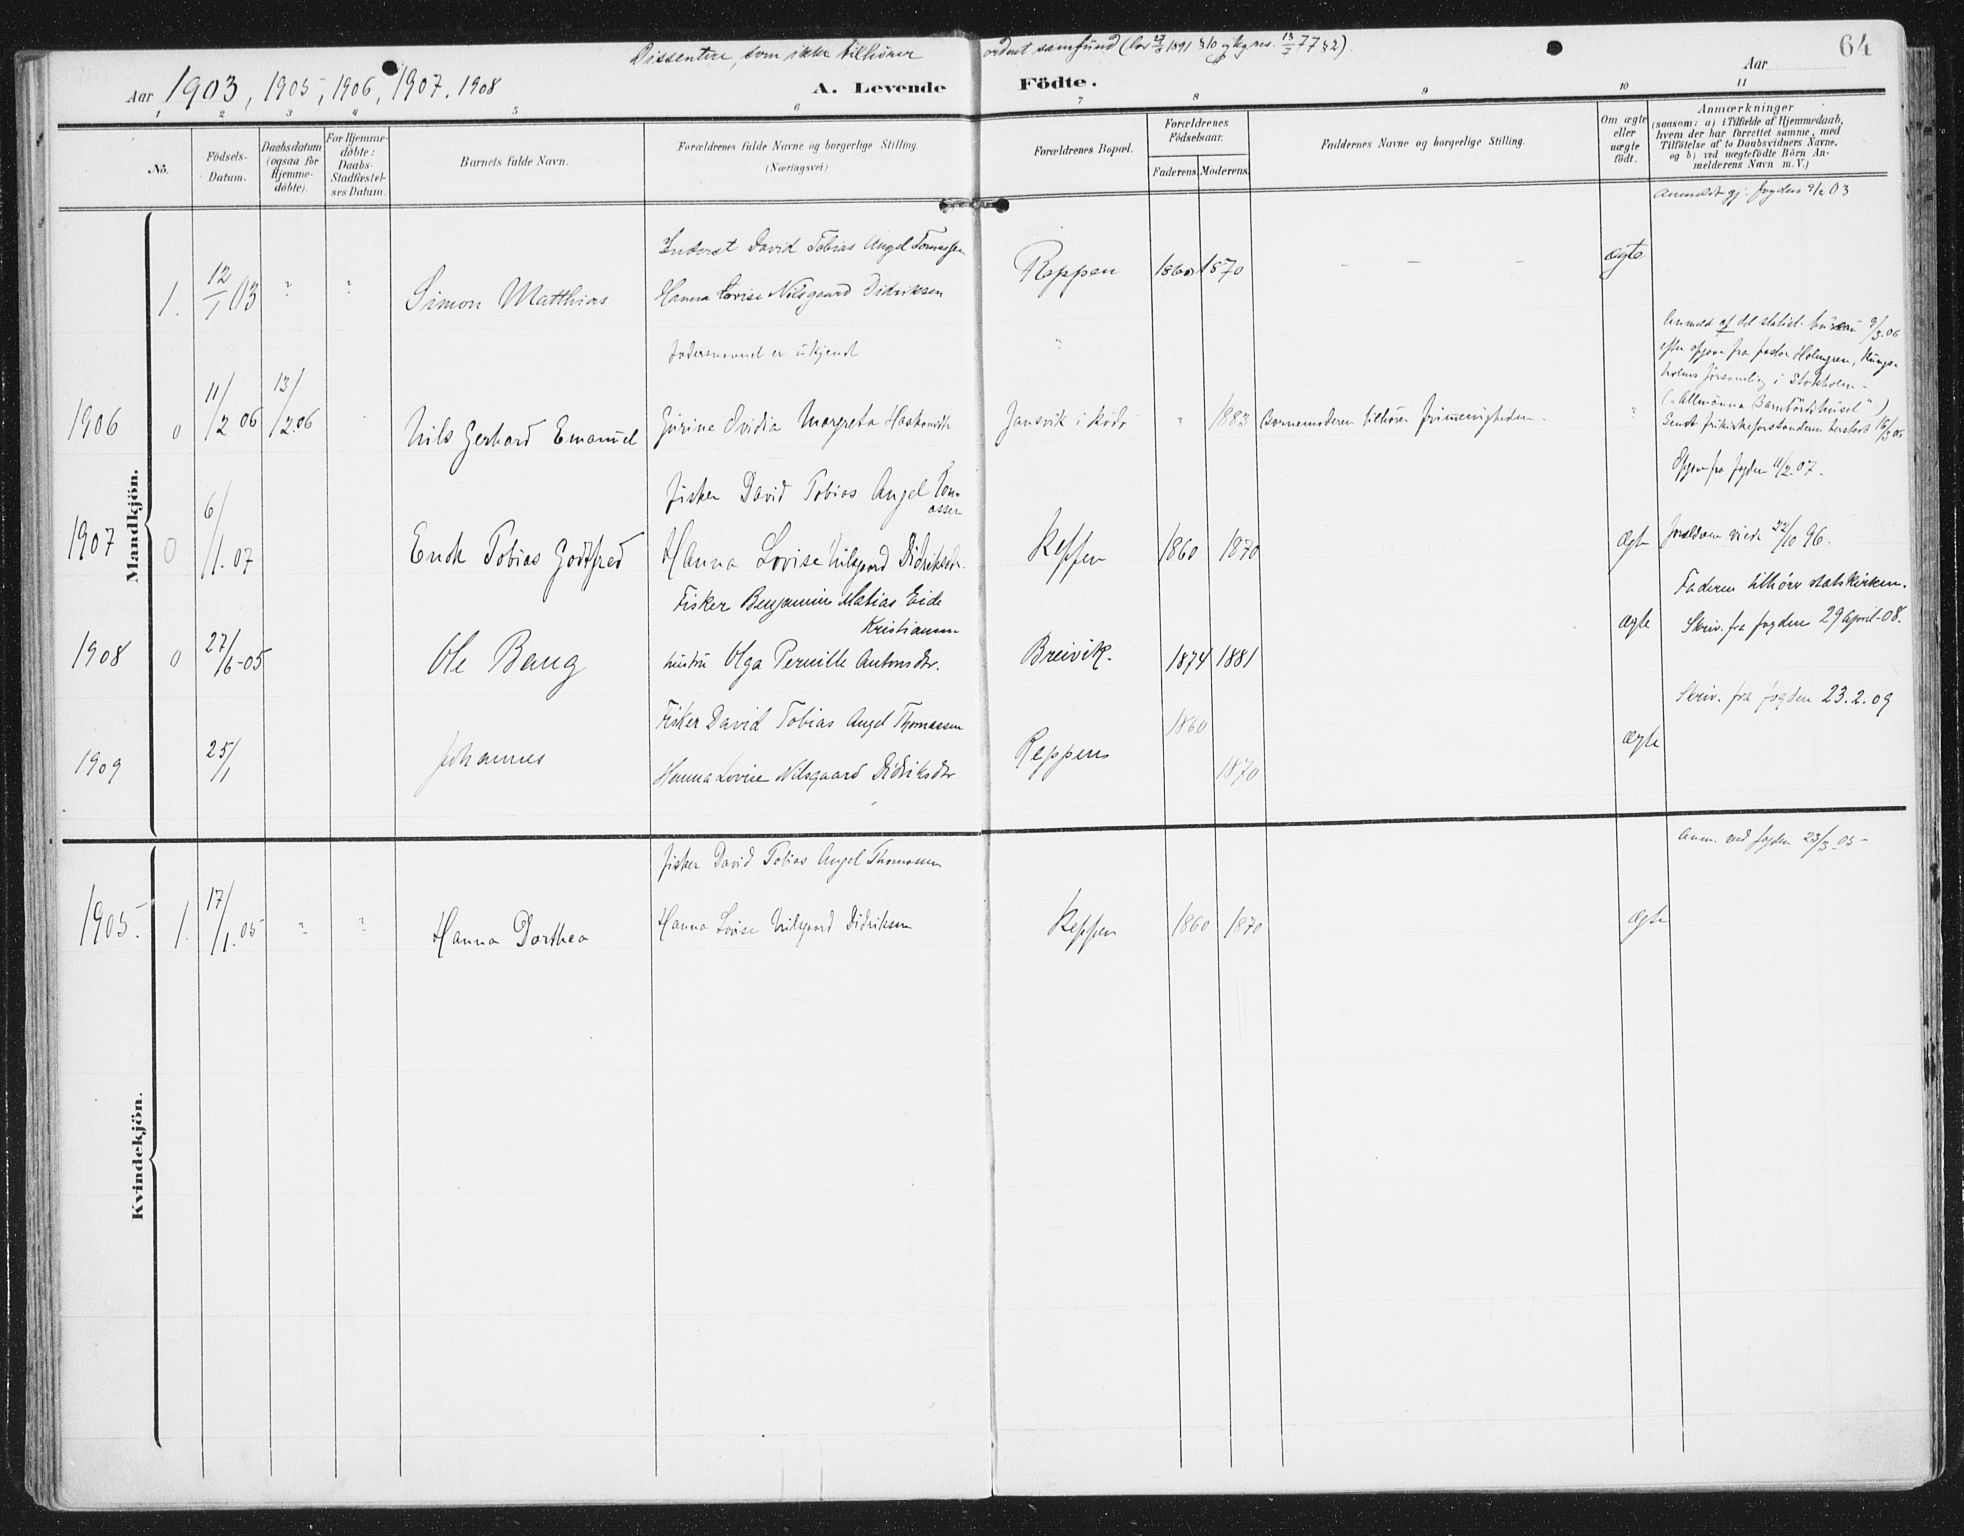 Dissentere, som ikke tilhører ordnet samfund (lov 27/6 1891 § 10 13/7 77 § 2).
64
Aar 1903, 1905, 1906, 1907, 1908
A. Levende Födte.
Aar
1 2 3 4 5 6 7 8 9 10 11
No.
Födsels-Datum.
Daabsdatum (ogsaa for Hjemme-döbte).
For Hjemme-döbte: Daabs-Stadfæstel-ses Datum.
Barnets fulde Navn.
Forældrenes fulde Navne og borgerlige Stilling.
(Næringsvei.)
Forældrenes Bopæl.
Forældrenes Födselsaar.
Faderens. Moderens.
Faddernes Navne og borgerlige Stilling.
Om ægte eller uægte födt.
Anmærkninger
(saasom: a) i Tilfælde af Hjemmedaab,
hvem der har forrettet samme, med
Tilföielse af to Daabsvidners Navne,
og b) ved uægtefödte Börn An-
melderens Navn m. V.)
Anmeldt gj. fogden 9/2 03
Mandkjön.
Inderst David Tobias Angel Tomassen
1. 12/1 03 " " Simon Matthias
Hanna Lovise Nilsgaard Didriksen
Reppen 1860 1870 – – – ægte
Fadernavnet er ukjendt "
Anmeld af det statist. 9/3.06
efter opgave fra pastor Holmgren, Kungs-
holms församling i Stokholm -
("Allmänna Barnbördshuset")
1906 0 11/2 06 13/2.06 Nils Gerhard Emanuel
Jansvik i " 1883 Barnemoderen tilhører frimenigheden. "
16/3 06
Opgave fra fogden 11/2.07.
Fisker David Tobias Angel Tom-
assen
1907 0 6/1.07 Enok Tobias Godtfred
Hanna Lovise Nilsgaard Didriksdtr.
Reppen 1860 1870 ægte
Forældrene viede 22/10 96.
Fisker Benjamin Matias Eide
Kristiansen
Faderen tilhører statskirken.
Skriv. fra fogden 29 april -08.
1908 0 27/6-05 Ole Bang
hustru Olga Pernille Antonsdtr.
Breivik. 1874 1881 ægte
Fisker David Tobias Angel Thomassen
Skriv. fra fogden 23.2.09
1909 25/1 Johannes
Hanna Lovise Nilsgaard Didriksdtr.
Reppen 1860 1870 ægte
Kvindekjön.
Fisker David Tobias Angel Thomassen
Anm. ved fogden 23/3.05 -
1905. 1. 17/1.05 " " Hanna Dorthea
Hanna Lovise Nilsgaard Didriksen
Reppen 1860 1870 ægte